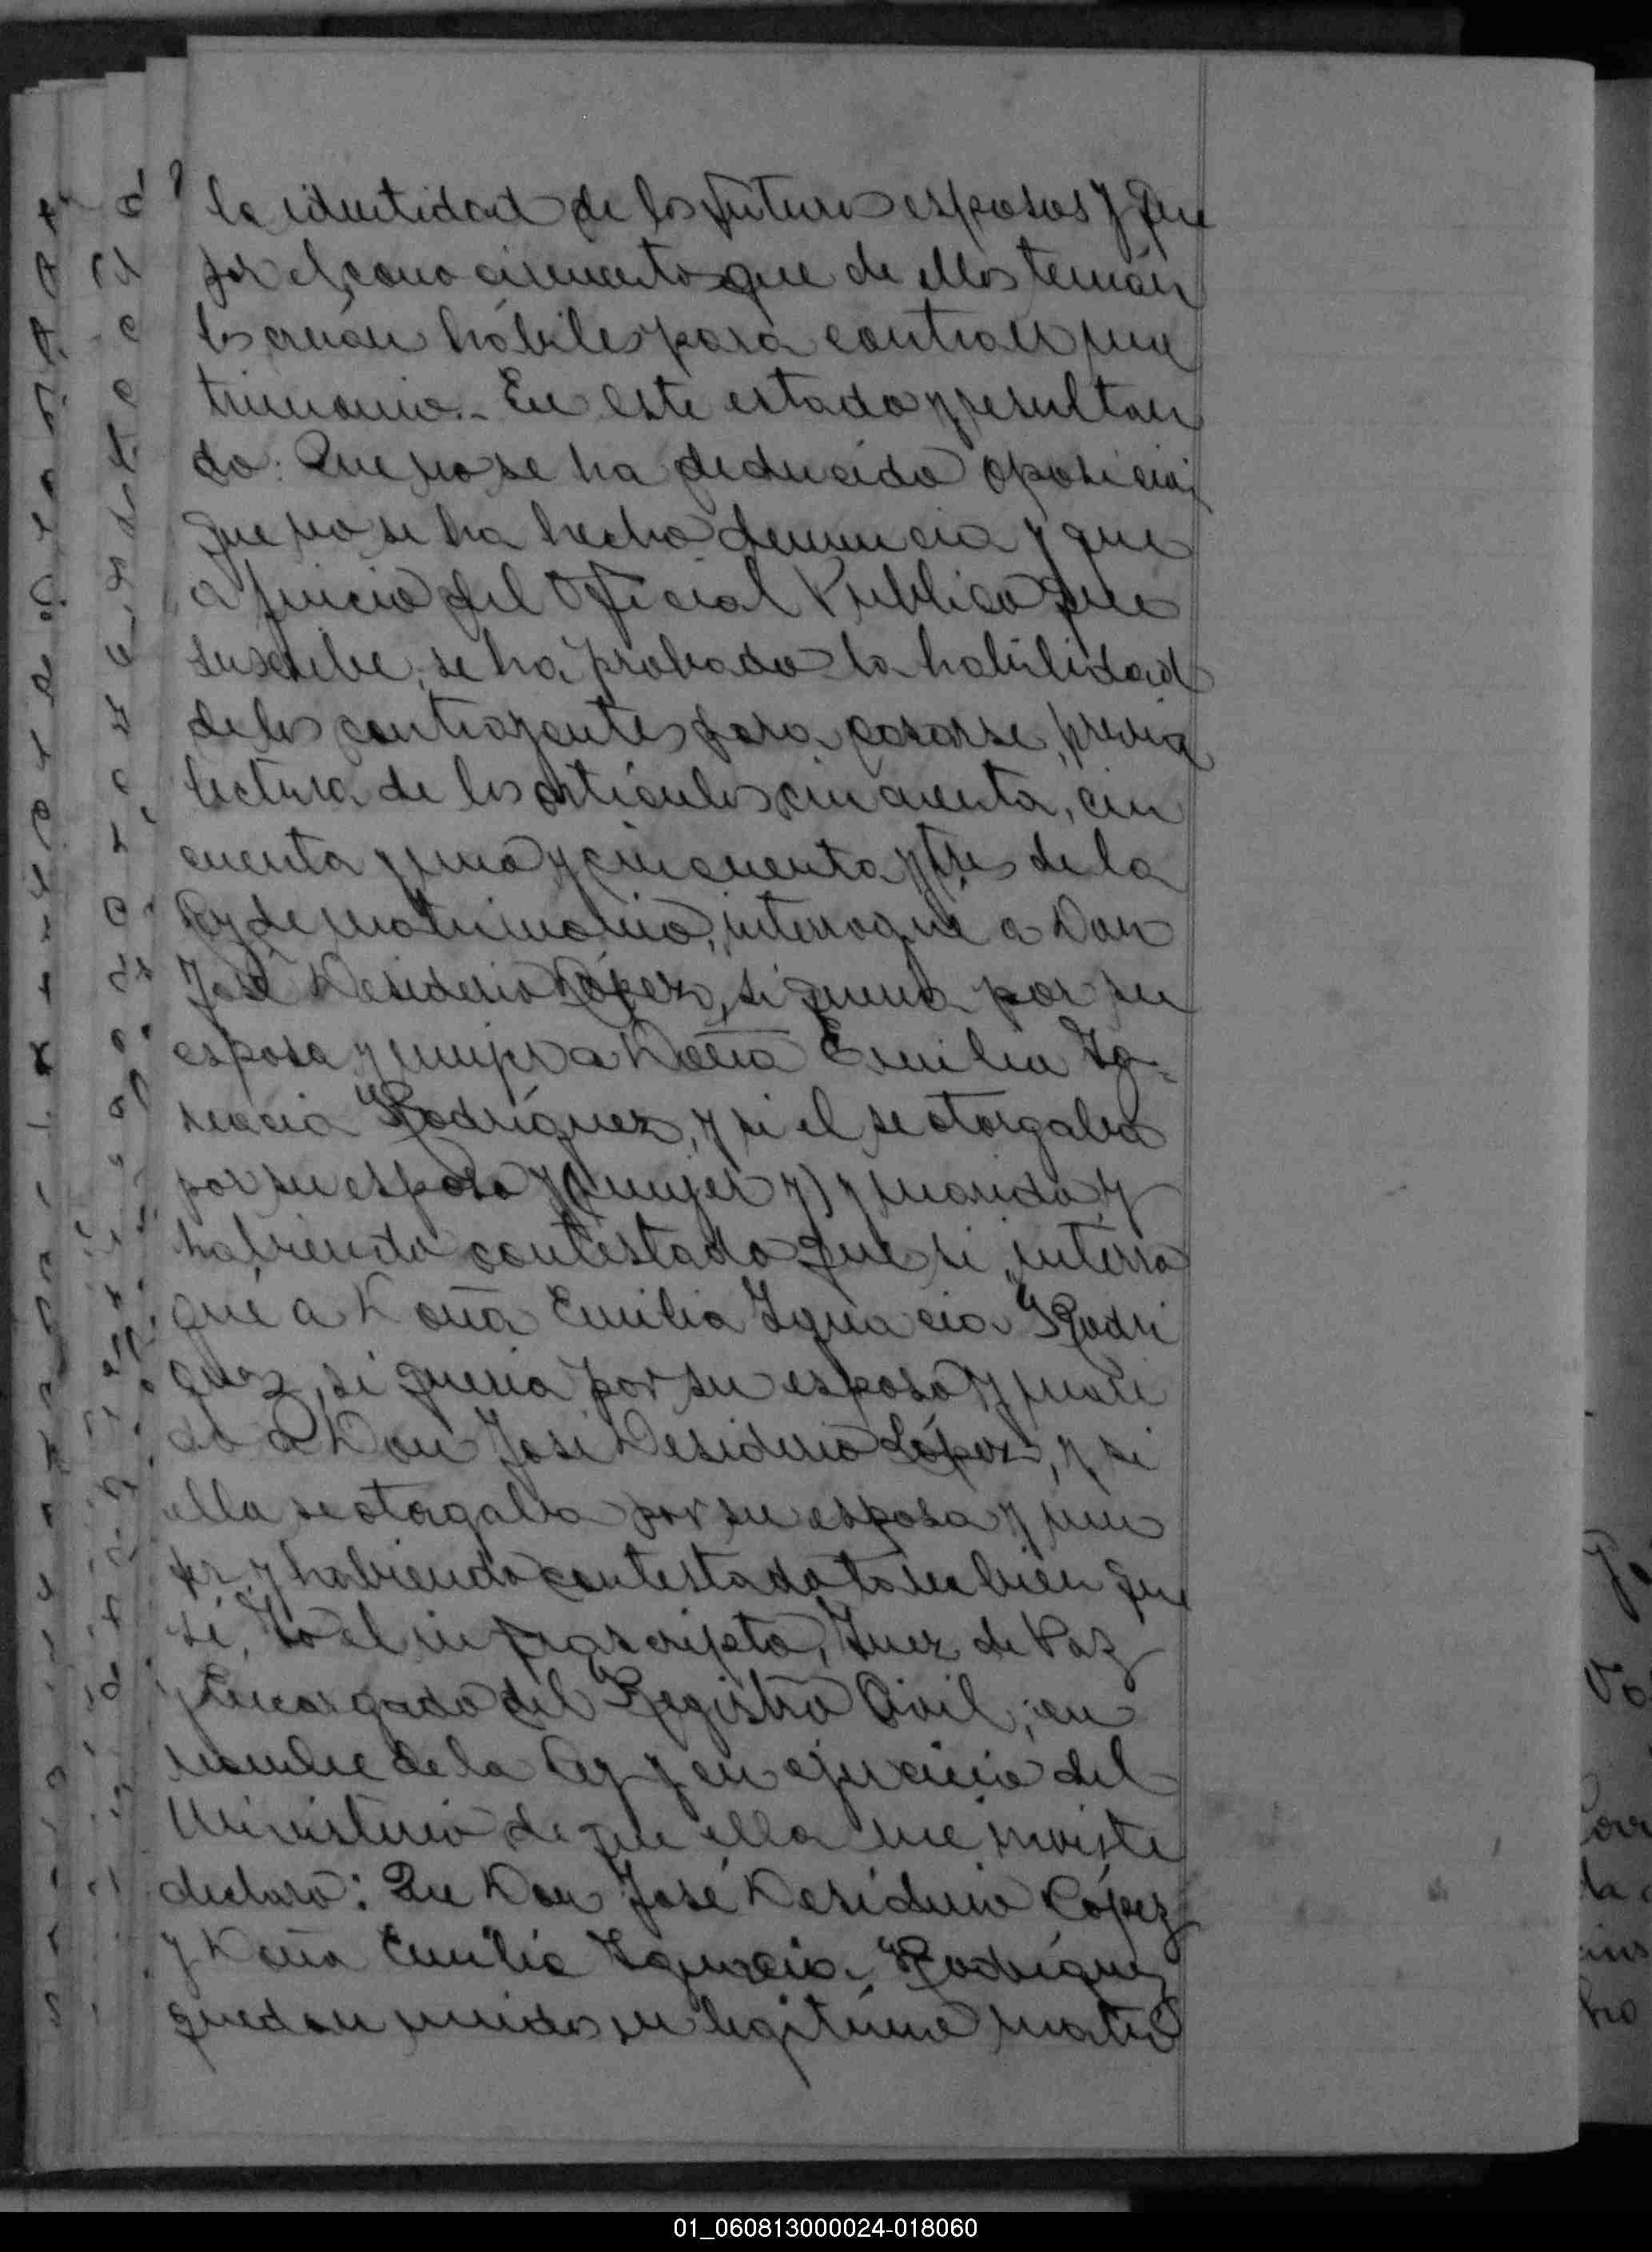 la identidad de los futuros esposos y que
por el conocimiento que de ellos tenían
los creían hábiles para contraer ma
trimonio.- En este estado y resultan
do: Que no se ha deducido oposición
que no se ha hecho denuncia y que
a juicio del Oficial Público que
suscribe, se ha probado la habilidad
de los contrayentes para casarse, previa
lectura de los artículos cincuenta, cin
cuenta y uno y cincuenta y tres de la
Ley de matrimonio, interrogué a Don
José Desiderio López, si queria por su
esposa y mujer a Doña Emilia Ig-
nacia Rodríguez, y si el se otorgaba
por su esposo y (mujer y) y marido, y
habiendo contestado que si, interro
gué a Doña Emilia Ignacia Rodri
guez, si queria por su esposo y mari
do a Don José Desiderio López, y si
ella se otorgaba por su esposa y mu
jer, y habiendo contestado tambien que
sí, Yo el infrascripto, Juez de Paz
y Encargado del Registro Civil, en
nombre de la Ley y en ejercicio del
Ministerio de que ella me inviste
declaro: Que Don José Desiderio López
y Doña Emilia Ignacia Rodríguez
quedan unidos en legítimo matri
01_060813000024-018060